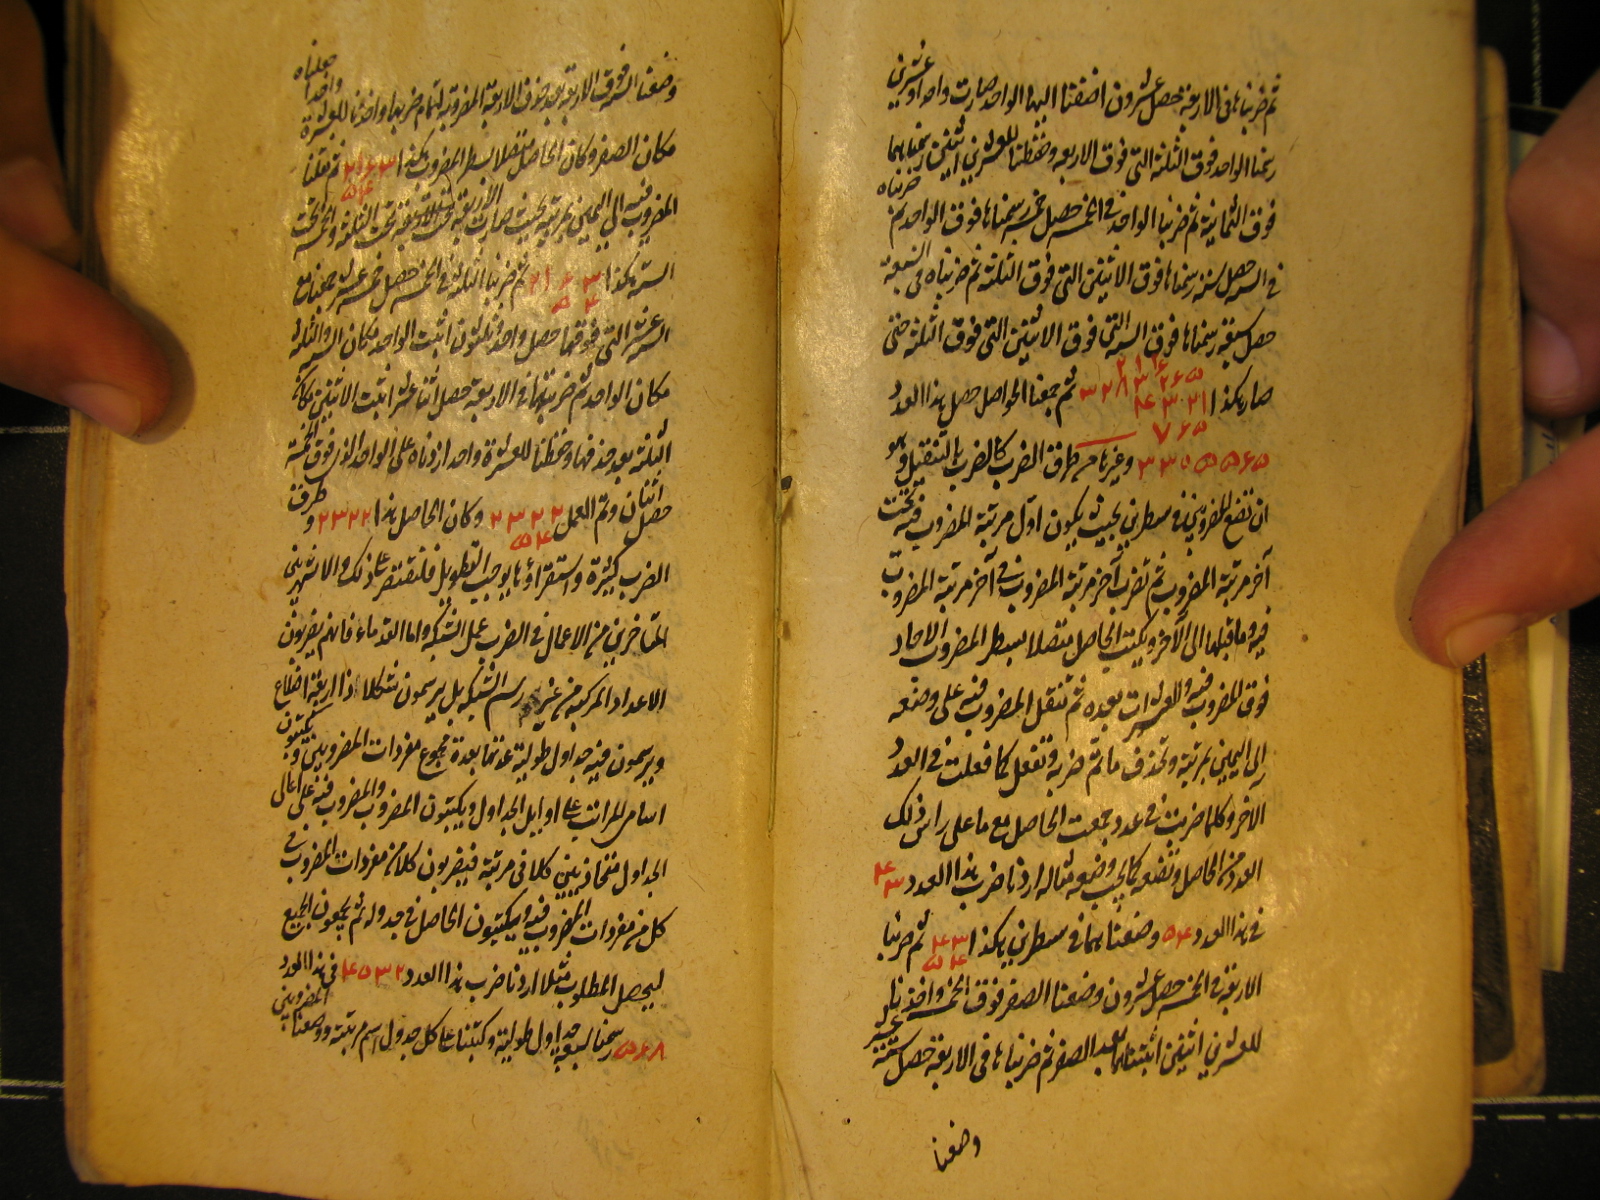 ثم ضربناها في الاربعة حصل عشرون اضفنا اليها الواحد صارت واحدا وعشرين
رسمنا الواحد فوق الثلثة التي فوق الاربعة وحفظنا للعشرين اثنين رسمناهما
فوق الثمانية ثم ضربنا الواحد في الخمسة حصل خمسة رسمناها فوق الواحد ثم ضربناه
في الستة حصل ستة رسمناها فوق الاثنين التي فوق الثلثة ثم ضربناه في السبعة
حصل سبعة رسمناها فوق الستة التي فوق الاثنين التي فوق الثلثة حتى
صار هكذا ثم جمعنا الحواصل حصل هذا العدد
۳۳۵۵۵۶۵ وغيرها من طرق الضرب كالضرب بالتنقيل وهو
ان تضع المضروبين في سطرين بحيث يكون اول مرتبة المضروب فيه تحت
آخر مرتبة المضروب ثم تضرب آخر مرتبة المضروب في آخر مرتبة المضروب
فيه وما قبلها الى الآخر ويكتب الحاصل متصلا بسطر المضروب الآحاد
فوق المضروب فيه والعشرات بعده ثم تنقل المضروب فيه على وضعه
الى اليمين بمرتبة وتحذف ما تم ضربه وتفعل كما فعلت في العدد
الآخر وكلما ضربت في عدد جمعت الحاصل مع ما على راس ذلك
العدد من الحاصل وتضعه كما يجب وضعه مثاله اردنا ضرب هذا العدد ۴۳
في هذا العدد ۵۴ وضعناهما في سطرين هكذا ۴۳ ۵۴ ثم ضربنا
الاربعة في الخمسة حصل عشرون وضعنا الصفر فوق الخمسة واخذنا
للعشرين اثنين اثبتناهما بعد الصفر ثم ضربناها في الاربعة حصل ستة عشر
وضعنا
وضعنا الستة فوق الاربعة بعد حذف الاربعة المضروبة لتمام ضربها واخذنا للعشرة واحدا جعلناه
مكان الصفر وكان الحاصل متصلا بسطر المضروب هكذا ۲۱۶۳ ۵۴ ثم نقلنا
المضروب فيه الى اليمين بمرتبة بحيث صارت الاربعة تحت الثلثة والخمسة تحت
الستة هكذا ۲۱۶۳ ۵۴ ثم ضربنا الثلثة في الخمسة حصل خمسة عشر جمعناها مع
الستة عشر التي فوقها حصل واحد وثلثون اثبت الواحد مكان الستة والثلثة
مكان الواحد ثم ضربناها في الاربعة حصل اثنا عشر اثبت الاثنين مكان
الثلثة بعد حذفها وحفظنا للعشرة واحدا زدناه على الواحد الذي فوق الخمسة
حصل اثنان وتم العمل ۲۳۲۲ ۵۴ وكان الحاصل هذا ۲۳۲۲ وطرق
الضرب كثيرة واستقراؤها يوجب التطويل فلنقتصر على ذلك والاشهر بين
المتأخرين من الاعمال في الضرب عمل الشبكة واما القدماء فانهم يضربون
الاعداد المركبة من غير رسم الشبكة بل يرسمون شكلا ذا اربعة اضلاع
ويرسمون فيه جداول طولية عدتها بعدة مجموع مفردات المضروبين ويكتبون
اسامي المراتب على اوايل الجداول ويكتبون المضروب والمضروب فيه على اعالي
الجداول متحاذيين كلا في مرتبة فيضربون كلا من مفردات المضروب في
كل من مفردات المضروب فيه ويكتبون الحاصل في جدوله ثم يجمعون الجميع
ليحصل المطلوب مثلا اردنا ضرب هذا العدد ۴۵۳۲ في هذا العدد
۵۶۸ رسمنا سبعة جداول طولية وكتبنا على كل جدول اسم مرتبته ووضعنا المضروبين